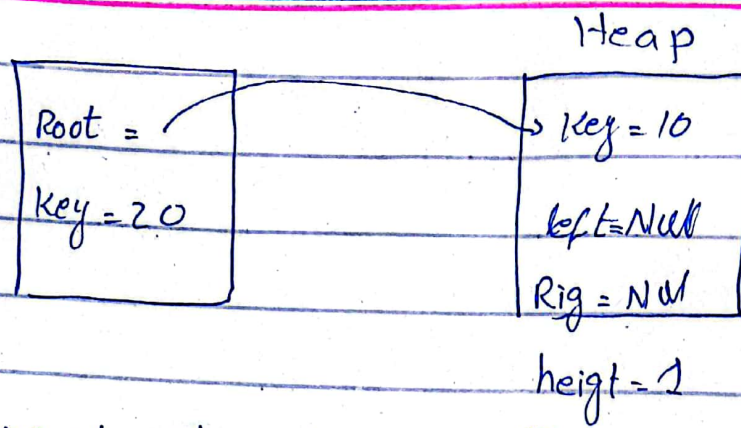 Heap
Root =
Key = 10
Key = 20
left = Null
Rig = Null
heigt = 1